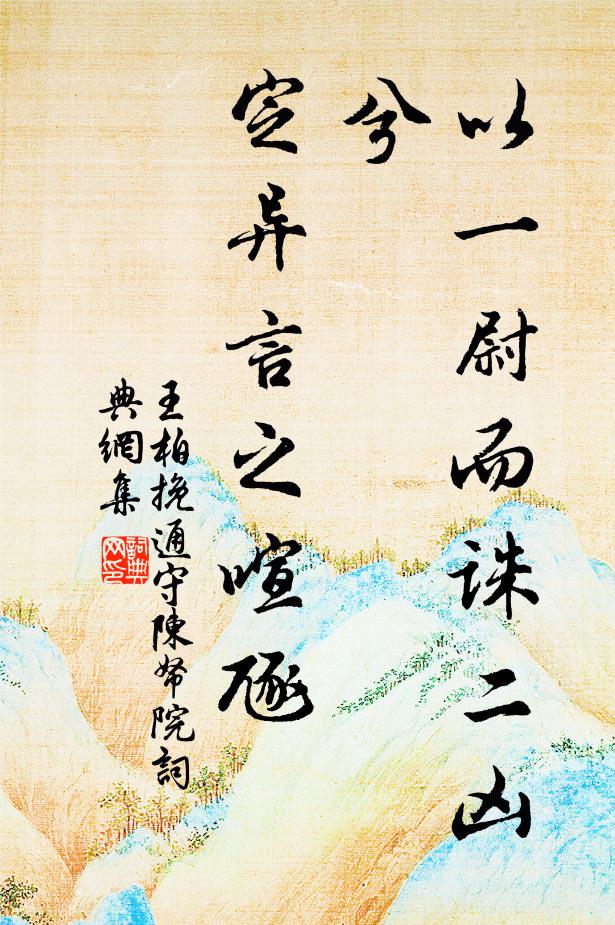 以一尉而誅二凶
兮
定异言之喧豗
王柏挽通守陳帑院詞
典網集
詞典
网印